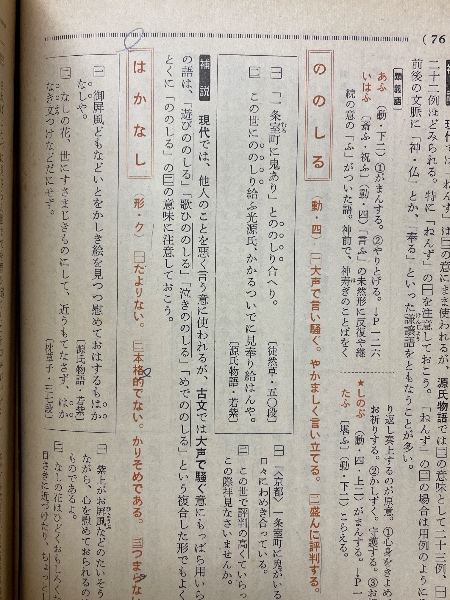 (76
二十二例ほどみられる。特に「ねんず」の㊀を注意しておこう。「ねんず」の㊁の場合は用例のように
前後の文脈に「神・仏」とか、「奉る」といった謙譲語をともなうことが多い。
類義語
あふ (動・下二) ①がまんする。②やりとげる。→P一二六
いはふ 〔斎ふ・祝ふ〕(動・四)「言ふ」の未然形に反復や継
続の意の「ふ」がついた語。神前で、神寿ぎのことばをく
り返し奏上するのが原意。①心身をきよめ
お祈りする。②かしずく。守護する。③お
★しのぶ (動・上二) がまんする。→P一
たふ 〔堪ふ〕(動・下二) こらえる。
ののしる (動・四) ㊀大声で言い騒ぐ。やかましく言い立てる。㊁盛んに評判する。
㊀ 「一条室町に鬼あり」とののしり合へり。 〔徒然草・五〇段〕
㊁ この世にののしり給ふ光源氏、かかるついでに見奉り給はんや。
〔源氏物語・若紫〕
㊀ 〈京都〉一条室町に鬼がいる
口々にわめき合っている。
㊁ この世で評判の高くていらっ
この際拝見なさいませんか。
補説 現代では、他人のことを悪く言う意に使われるが、古文では大声で騒ぐ意にもっぱら用いら
の語は、「遊びののしる」「歌ひののしる」「泣きののしる」「めでののしる」という複合した形でもよく
とくに「ののしる」の㊁の意味に注意しておこう。
はかなし (形・ク) ㊀たよりない。㊁本格的でない。かりそめである。㊂つまらな
㊀ 御屏風どもなどいとをかしき絵を見つつ慰めておはするもはか
なしや。 〔源氏物語・若紫〕
㊁ なしの花、世にすさまじきものにして、近うもてなさず、はか
なき文つけなどだにせず。 〔枕草子・三七段〕
㊀ 紫上がお屏風などのたいそう
ながら、心を慰めておられるの
ものであるよ。
㊁ なしの花はひどくおもしろく